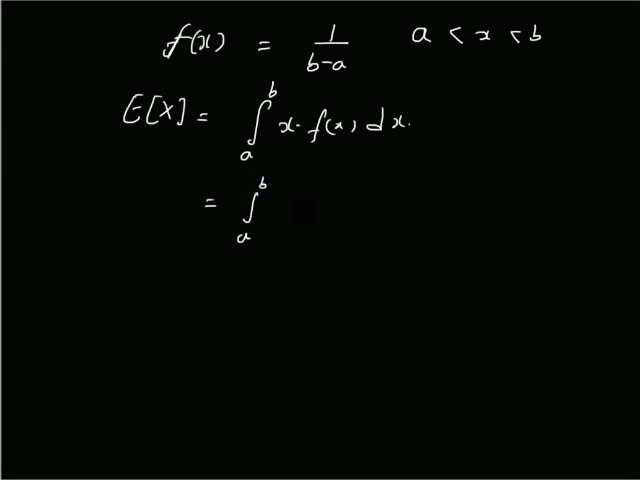 f(x) = 1/(b-a) a < x < b
E[X] = ∫_a^b x. f(x) dx.
= ∫_a^b